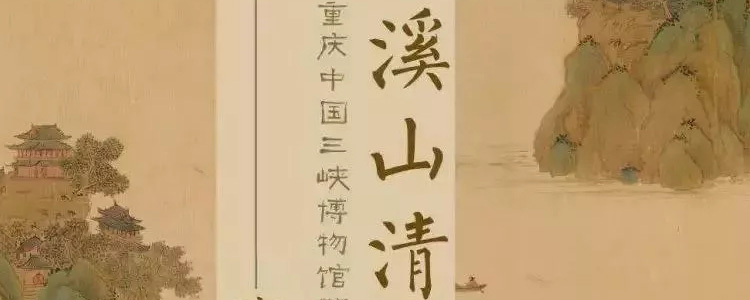 溪山清
重庆中国三峡博物馆